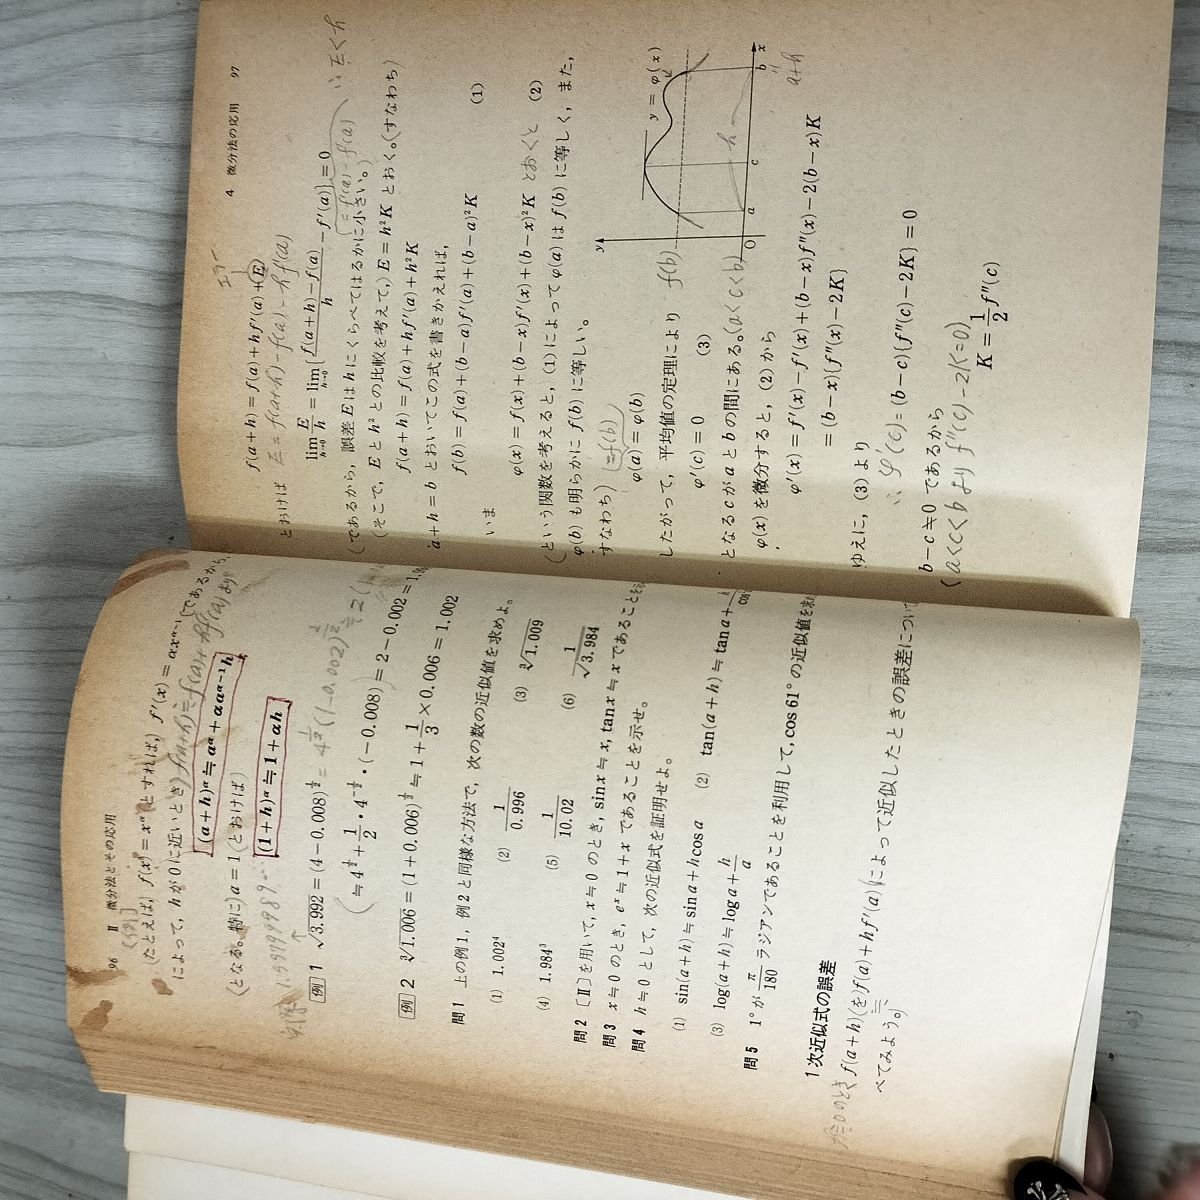 96 Ⅱ 微分法とその応用
(たとえば,) f(x) = xᵅ (とすれば,) f′(x) = αxᵅ⁻¹ (であるから,
によって, hが0に近いとき) f(a+h)≒f(a)+hf′(a)より
(a+h)ᵅ ≒ aᵅ + αaᵅ⁻¹h
(となる。特に) a = 1 (とおけば)
(1+h)ᵅ ≒ 1 + αh
例 1 √3.992 = (4−0.008)^{1/2} = 4^{1/2}(1−0.002)^{1/2}
(≒ 4^{1/2} + 1/2 · 4^{−1/2} · (−0.008) = 2 − 0.002 =
例 2 ∛1.006 = (1+0.006)^{1/3} ≒ 1 + 1/3 × 0.006 = 1.002
問 1 上の例1, 例2と同様な方法で, 次の数の近似値を求めよ。
(1) 1.002⁴ (2) 1/0.996 (3) ∛1.009
(4) 1.984³ (5) 1/10.02 (6) 1/√3.984
問 2 [Ⅱ]を用いて, x≒0 のとき, sin x≒x, tan x≒x であることを
問 3 x≒0 のとき, eˣ≒1+x であることを示せ。
問 4 h≒0 として, 次の近似式を証明せよ。
(1) sin(a+h)≒sin a+h cos a (2) tan(a+h)≒tan a+
(3) log(a+h)≒log a+h/a
問 5 1°が π/180 ラジアンであることを利用して, cos 61°の近似値を求
1次近似式の誤差
f(a+h)(を)f(a)+hf′(a)(によって近似したときの誤差につい
べてみよう。)
4 微分法の応用 97
エラー
f(a+h) = f(a)+hf′(a)+E
とおけば E = f(a+h)−f(a)−hf′(a)
lim_{h→0} E/h = lim_{h→0} { (f(a+h)−f(a))/h − f′(a) } = 0
= f′(a)−f′(a) ∴ E<h
(であるから, 誤差Eはhにくらべてはるかに小さい。)
(そこで, Eとh²との比較を考えて,) E = h²K とおく。(すなわち)
f(a+h) = f(a)+hf′(a)+h²K
a+h = b とおいてこの式を書きかえれば,
f(b) = f(a)+(b−a)f′(a)+(b−a)²K (1)
いま
φ(x) = f(x)+(b−x)f′(x)+(b−x)²K とおくと (2)
(という関数を考えると, (1)によってφ(a)はf(b)に等しく, また,
φ(b)も明らかにf(b)に等しい。
すなわち) (=f(b))
φ(a) = φ(b)
したがって, 平均値の定理により
φ′(c) = 0 (3)
となるcがaとbの間にある。(a<c<b)
y
y = φ(x)
f(b)
h
O a c b x
a+h
φ(x)を微分すると, (2)から
φ′(x) = f′(x)−f′(x)+(b−x)f″(x)−2(b−x)K
= (b−x){f″(x)−2K}
ゆえに, (3)より
∴ φ′(c) = (b−c){f″(c)−2K} = 0
b−c≒0 であるから
(a<c<bより f″(c)−2K=0)
K = 1/2 f″(c)